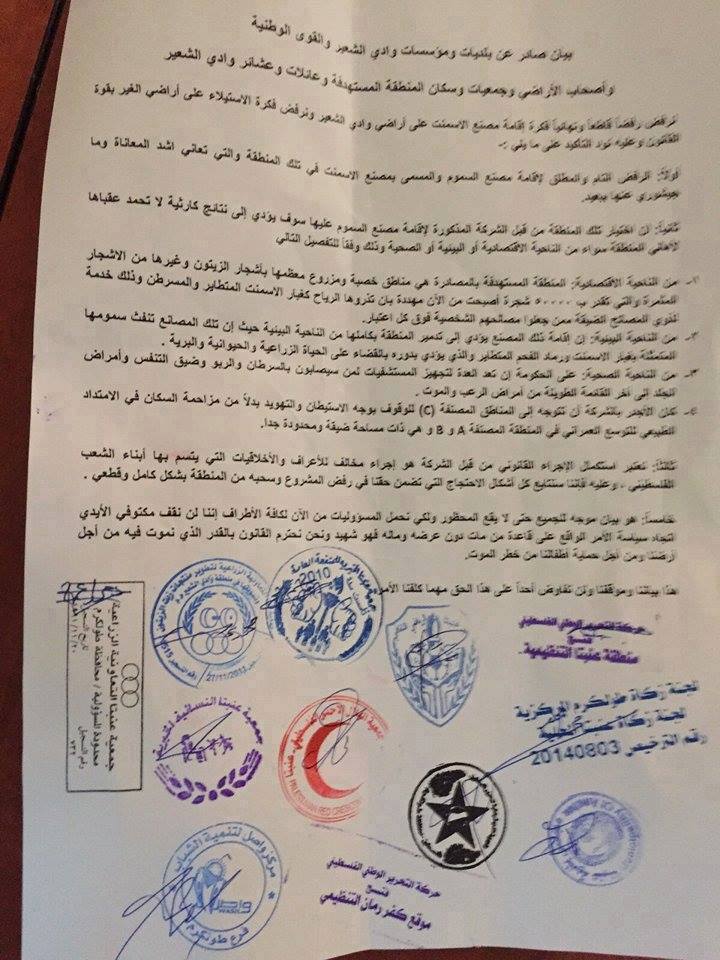 بيان صادر عن بلديات ومؤسسات وادي الشعير والقوى الوطنية
وأصحاب الأراضي وجمعيات وسكان المنطقة المستهدفة وعائلات وعشائر وادي الشعير
نرفض رفضاً قاطعاً ونهائياً فكرة إقامة مصنع الاسمنت على أراضي وادي الشعير ونرفض فكرة الاستيلاء على أراضي الغير بقوة
القانون وعليه نود التأكيد على ما يلي :-
أولاً: الرفض التام والمطلق لإقامة مصنع السموم والمسمى بمصنع الاسمنت في تلك المنطقة والتي تعاني اشد المعاناة وما
جيشوري عنها ببعيد.
ثانياً: ان اختيار تلك المنطقة من قبل الشركة المذكورة لإقامة مصنع السموم عليها سوف يؤدي إلى نتائج كارثية لا تحمد عقباها
لأهالي المنطقة سواء من الناحية الاقتصادية أو البيئية أو الصحية وذلك وفقاً للتفصيل التالي
١- من الناحية الاقتصادية: المنطقة المستهدفة بالمصادرة هي مناطق خصبة ومزروع معظمها بأشجار الزيتون وغيرها من الاشجار
المثمرة والتي تقدر ب ٥٠٠٠٠ شجرة أصبحت من الآن مهددة بان تذروها الرياح كغبار الاسمنت المتطاير والمسرطن وذلك خدمة
لذوي المصالح الضيقة ممن جعلوا مصالحهم الشخصية فوق كل اعتبار.
٢- من الناحية البيئية: إن إقامة ذلك المصنع يؤدي إلى تدمير المنطقة بكاملها من الناحية البيئية حيث إن تلك المصانع تنفث سمومها
المتمثلة بغبار الاسمنت ورماد الفحم المتطاير والذي يؤدي بدوره بالقضاء على الحياة الزراعية والحيوانية والبرية .
٣- من الناحية الصحية: على الحكومة إن تعد العدة لتجهيز المستشفيات لمن سيصابون بالسرطان والربو وضيق التنفس وأمراض
الجلد إلى آخر القائمة الطويلة من أمراض الرعب والموت .
٤- كان الأجدر بالشركة أن تتوجه إلى المناطق المصنفة (C) للوقوف بوجه الاستيطان والتهويد بدلاً من مزاحمة السكان في الامتداد
الطبيعي للتوسع العمراني في المنطقة المصنفة A و B و هي ذات مساحة ضيقة ومحدودة جدا.
ثالثاً: نعتبر استكمال الإجراء القانوني من قبل الشركة هو إجراء مخالف للأعراف والأخلاقيات التي يتسم بها أبناء الشعب
الفلسطيني ، وعليه فإننا سنتابع كل أشكال الاحتجاج التي تضمن حقنا في رفض المشروع وسحبه من المنطقة بشكل كامل وقطعي .
خامساً: هو بيان موجه للجميع حتى لا يقع المحظور ولكي نحمل المسؤوليات من الآن لكافة الأطراف إننا لن نقف مكتوفي الأيدي
اتجاه سياسة الأمر الواقع على قاعدة من مات دون عرضه وماله فهو شهيد ونحن نحترم القانون بالقدر الذي نموت فيه من أجل
أرضنا ومن أجل حماية أطفالنا من خطر الموت.
هذا بياننا وموقفنا ولن نفاوض أحداً على هذا الحق مهما كلفنا الأمر
حركة التحرير الوطني الفلسطيني
فتح
منطقة عنبتا التنظيمية
2010
27/11/2013
جمعية عنبتا التعاونية الزراعية
محدودة المسؤولية / محافظة طولكرم
رقم التسجيل
٧٣٢
تاريخ التسجيل
لجنة زكاة طولكرم المركزية
لجنة زكاة عنبتا المحلية
رقم الترخيص 20140803
جمعية عنبتا النسائية الخيرية
جمعية الهلال الأحمر الفلسطيني عنبتا
PALESTINIAN RED CRESCENT
مركز واصل لتنمية الشباب
واصل
WASEL
فرع طولكرم
حركة التحرير الوطني الفلسطيني
فتح
موقع كفر رمان التنظيمي